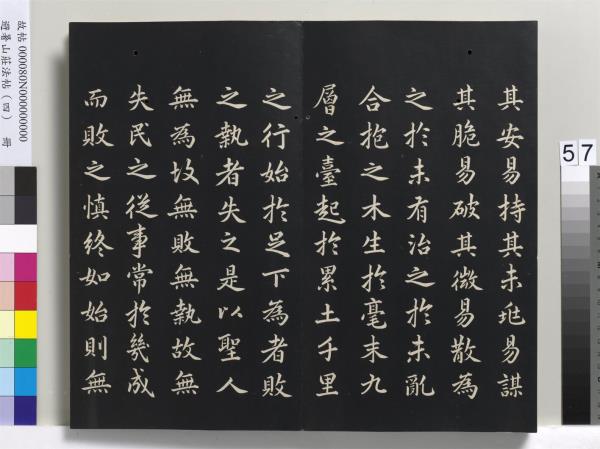 其安易持其未兆易謀
其脆易破其微易散為
之於未有治之於未亂
合抱之木生於毫末九
層之臺起於累土千里
之行始於足下為者敗
之執者失之是以聖人
無為故無敗無執故無
失民之從事常於幾成
而敗之慎終如始則無
故帖 000080N000000000
避暑山莊法帖(四) 冊
57